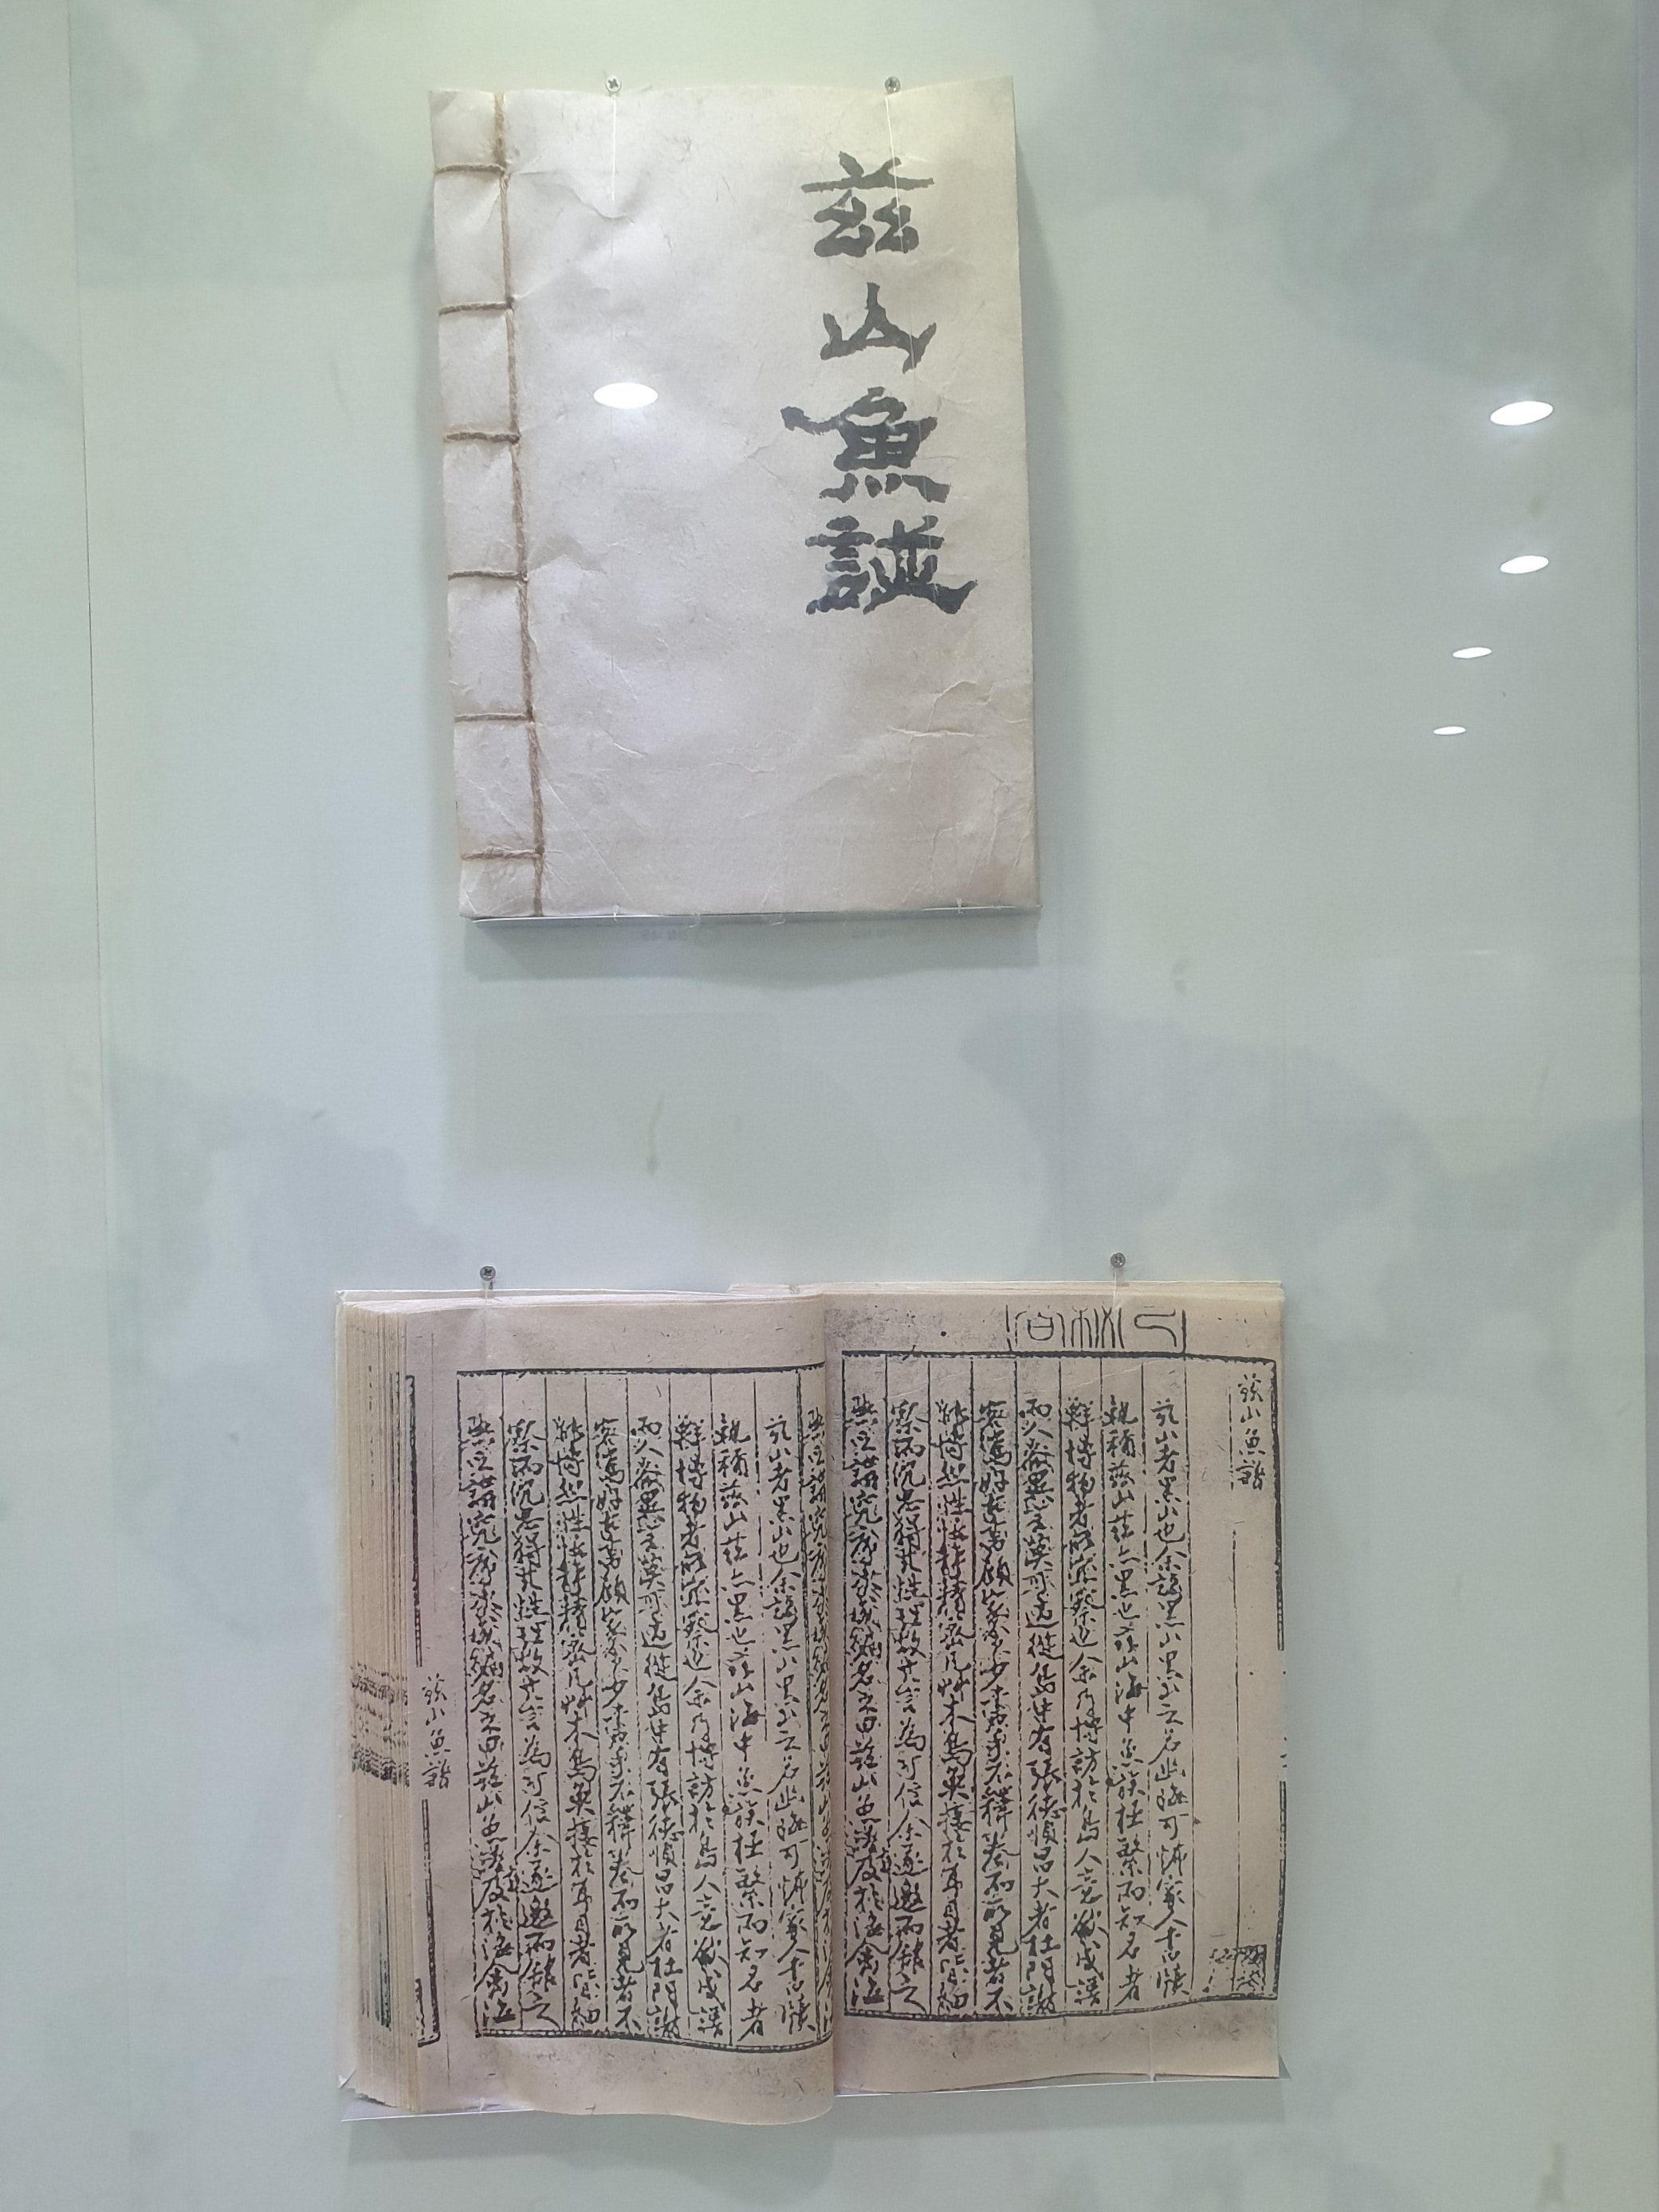 茲山魚譜
玆山魚譜
玆山者黑山也余謫黑山黑山之名幽晦可怖家人書牘
輒稱玆山玆亦黑也玆山海中魚族極繁而知名者
鮮博物者所宜察也余乃博訪於島人意欲成譜
而人各異言莫可適從島中有張德順昌大者杜門謝
客篤好古書顧家貧少書手不釋卷而所見者不
能博然性恬靜精密凡艸木鳥魚接於耳目者皆細
察而沉思得其性理故其言為可信余遂邀而館之
與之講究序次成編名之曰玆山魚譜旁及於海禽海
玆山者黑山也余謫黑山黑山之名幽晦可怖家人書牘
輒稱玆山玆亦黑也玆山海中魚族極繁而知名者
鮮博物者所宜察也余乃博訪於島人意欲成譜
而人各異言莫可適從島中有張德順昌大者杜門謝
客篤好古書顧家貧少書手不釋卷而所見者不
能博然性恬靜精密凡艸木鳥魚接於耳目者皆細
察而沉思得其性理故其言為可信余遂邀而館之
與之講究序次成編名之曰玆山魚譜旁及於海禽海
玆山魚譜